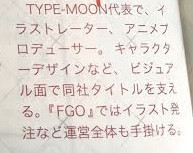 TYPE-MOON代表で、イ
ラストレーター、アニメプ
ロデューサー。キャラクタ
ーデザインなど、ビジュア
ル面で同社タイトルを支え
る。『FGO』ではイラスト発
注など運営全体も手掛ける。